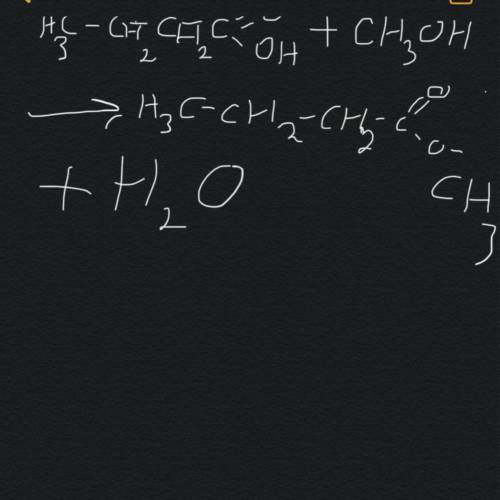 H3C - CH2 CH2 C = O OH + CH3OH
→ H3C - CH2 - CH2 - C = O O - CH3
+ H2O